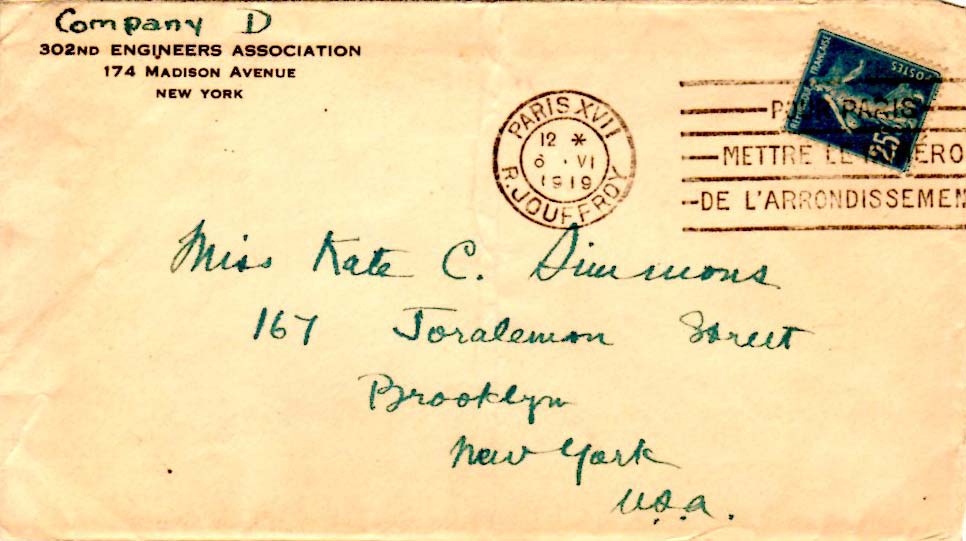 Company D
302ND ENGINEERS ASSOCIATION
174 MADISON AVENUE
NEW YORK
PARIS XVII
12 *
6 · VI
1919
R. JOUFFROY
RÉPUBLIQUE FRANÇAISE
POSTES
25
PARIS
METTRE LE
DE L'ARRONDISSEMEN
Miss Kate C. Simmons
167 Joralemon Street
Brooklyn
New York
U.S.A.